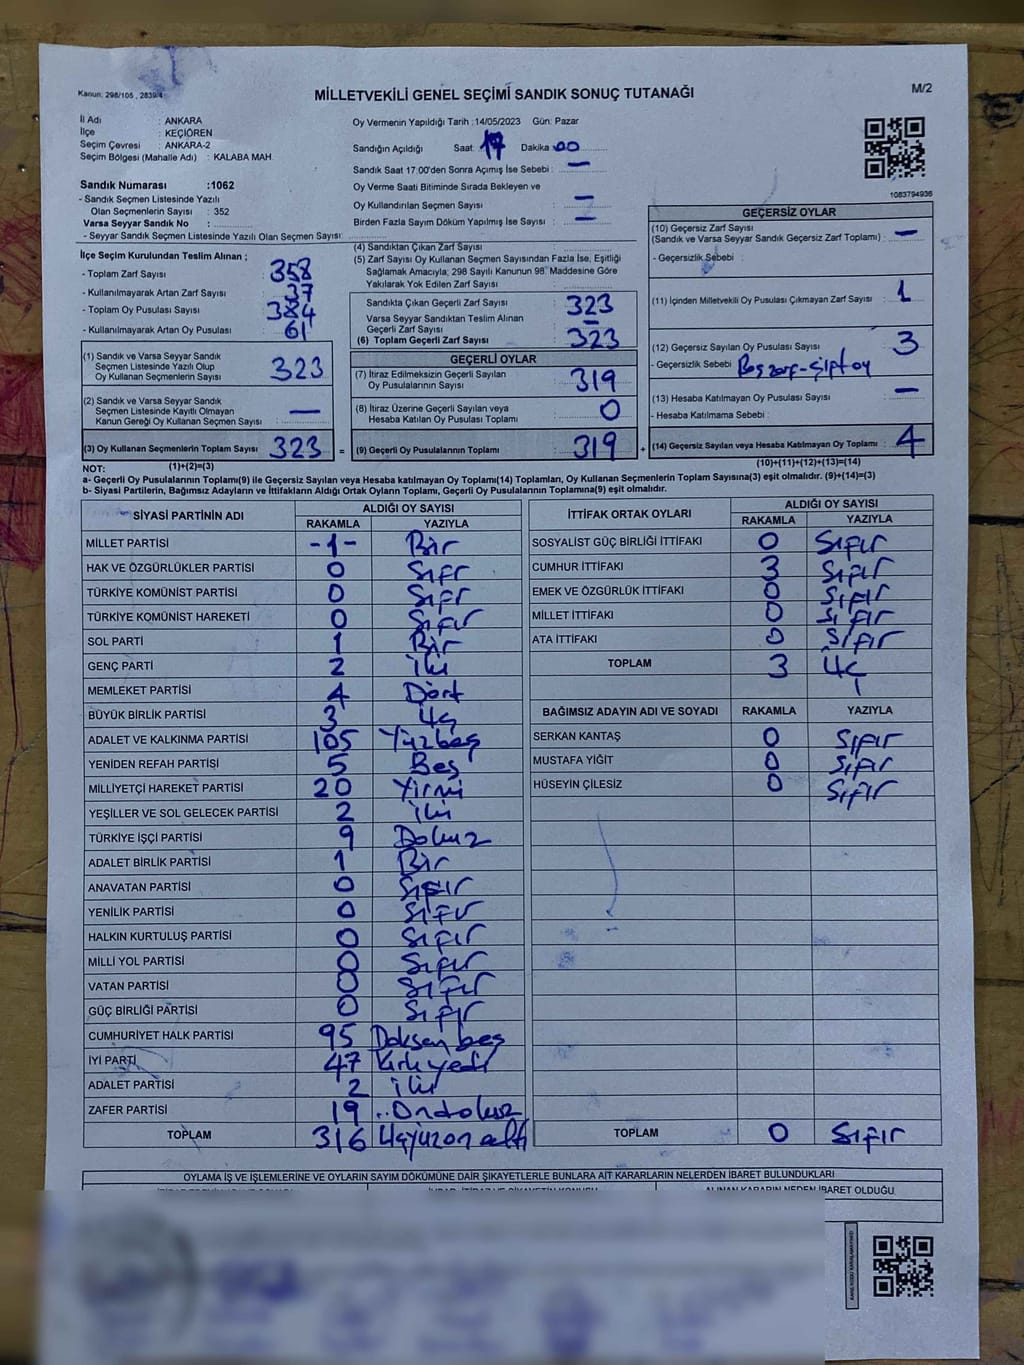 Kanun: 298/105 , 2839/4
MİLLETVEKİLİ GENEL SEÇİMİ SANDIK SONUÇ TUTANAĞI
M/2
İl Adı : ANKARA
İlçe : KEÇİÖREN
Seçim Çevresi : ANKARA-2
Seçim Bölgesi (Mahalle Adı) : KALABA MAH.
Sandık Numarası :1062
- Sandık Seçmen Listesinde Yazılı
Olan Seçmenlerin Sayısı : 352
Varsa Seyyar Sandık No :
- Seyyar Sandık Seçmen Listesinde Yazılı Olan Seçmen Sayısı:
Oy Vermenin Yapıldığı Tarih :14/05/2023 Gün: Pazar
Sandığın Açıldığı Saat: 17 Dakika 00
Sandık Saat 17:00'den Sonra Açımış İse Sebebi : —
Oy Verme Saati Bitiminde Sırada Bekleyen ve
Oy Kullandırılan Seçmen Sayısı : —
Birden Fazla Sayım Döküm Yapılmış İse Sayısı : —
1083794936
İlçe Seçim Kurulundan Teslim Alınan ;
- Toplam Zarf Sayısı : 358
- Kullanılmayarak Artan Zarf Sayısı : 37
- Toplam Oy Pusulası Sayısı : 384
- Kullanılmayarak Artan Oy Pusulası : 61
(1) Sandık ve Varsa Seyyar Sandık
Seçmen Listesinde Yazılı Olup
Oy Kullanan Seçmenlerin Sayısı : 323
(2) Sandık ve Varsa Seyyar Sandık
Seçmen Listesinde Kayıtlı Olmayan
Kanun Gereği Oy Kullanan Seçmen Sayısı : —
(3) Oy Kullanan Seçmenlerin Toplam Sayısı : 323
(1)+(2)=(3)
(4) Sandıktan Çıkan Zarf Sayısı :
(5) Zarf Sayısı Oy Kullanan Seçmen Sayısından Fazla İse, Eşitliği
Sağlamak Amacıyla; 298 Sayılı Kanunun 98. Maddesine Göre
Yakılarak Yok Edilen Zarf Sayısı :
Sandıkta Çıkan Geçerli Zarf Sayısı : 323
Varsa Seyyar Sandıktan Teslim Alınan
Geçerli Zarf Sayısı : —
(6) Toplam Geçerli Zarf Sayısı : 323
GEÇERLİ OYLAR
(7) İtiraz Edilmeksizin Geçerli Sayılan
Oy Pusulalarının Sayısı : 319
(8) İtiraz Üzerine Geçerli Sayılan veya
Hesaba Katılan Oy Pusulası Toplamı : 0
= (9) Geçerli Oy Pusulalarının Toplamı : 319 +
GEÇERSİZ OYLAR
(10) Geçersiz Zarf Sayısı
(Sandık ve Varsa Seyyar Sandık Geçersiz Zarf Toplamı) : —
- Geçersizlik Sebebi :
(11) İçinden Milletvekili Oy Pusulası Çıkmayan Zarf Sayısı : 1
(12) Geçersiz Sayılan Oy Pusulası Sayısı : 3
- Geçersizlik Sebebi : Boş zarf-Şift oy
(13) Hesaba Katılmayan Oy Pusulası Sayısı : —
- Hesaba Katılmama Sebebi :
(14) Geçersiz Sayılan veya Hesaba Katılmayan Oy Toplamı : 4
(10)+(11)+(12)+(13)=(14)
NOT:
a- Geçerli Oy Pusulalarının Toplamı(9) ile Geçersiz Sayılan veya Hesaba katılmayan Oy Toplamı(14) Toplamları, Oy Kullanan Seçmenlerin Toplam Sayısına(3) eşit olmalıdır. (9)+(14)=(3)
b- Siyasi Partilerin, Bağımsız Adayların ve İttifakların Aldığı Ortak Oyların Toplamı, Geçerli Oy Pusulalarının Toplamına(9) eşit olmalıdır.
SİYASİ PARTİNİN ADI ALDIĞI OY SAYISI
RAKAMLA YAZIYLA
MİLLET PARTİSİ -1- Bir
HAK VE ÖZGÜRLÜKLER PARTİSİ 0 Sıfr
TÜRKİYE KOMÜNİST PARTİSİ 0 Sıfr
TÜRKİYE KOMÜNİST HAREKETİ 0 Sıfır
SOL PARTİ 1 Bir
GENÇ PARTİ 2 iki
MEMLEKET PARTİSİ 4 Dört
BÜYÜK BİRLİK PARTİSİ 3 Üç
ADALET VE KALKINMA PARTİSİ 105 Yüzbeş
YENİDEN REFAH PARTİSİ 5 Beş
MİLLİYETÇİ HAREKET PARTİSİ 20 Yirmi
YEŞİLLER VE SOL GELECEK PARTİSİ 2 iki
TÜRKİYE İŞÇİ PARTİSİ 9 Dokuz
ADALET BİRLİK PARTİSİ 1 Bir
ANAVATAN PARTİSİ 0 Sıfır
YENİLİK PARTİSİ 0 Sıfır
HALKIN KURTULUŞ PARTİSİ 0 Sıfır
MİLLİ YOL PARTİSİ 0 Sıfır
VATAN PARTİSİ 0 Sıfır
GÜÇ BİRLİĞİ PARTİSİ 0 Sıfır
CUMHURİYET HALK PARTİSİ 95 Doksan beş
İYİ PARTİ 47 Kırk yedi
ADALET PARTİSİ 2 iki
ZAFER PARTİSİ 19 ..Ondokuz
TOPLAM 316 Üçyüzon altı
İTTİFAK ORTAK OYLARI ALDIĞI OY SAYISI
RAKAMLA YAZIYLA
SOSYALİST GÜÇ BİRLİĞİ İTTİFAKI 0 Sıfır
CUMHUR İTTİFAKI 3 Sıfır
EMEK VE ÖZGÜRLÜK İTTİFAKI 0 Sıfır
MİLLET İTTİFAKI 0 Sıfır
ATA İTTİFAKI 0 Sıfır
TOPLAM 3 Üç
BAĞIMSIZ ADAYIN ADI VE SOYADI RAKAMLA YAZIYLA
SERKAN KANTAŞ 0 Sıfır
MUSTAFA YİĞİT 0 Sıfır
HÜSEYİN ÇİLESİZ 0 Sıfır
TOPLAM 0 Sıfır
OYLAMA İŞ VE İŞLEMLERİNE VE OYLARIN SAYIM DÖKÜMÜNE DAİR ŞİKAYETLERLE BUNLARA AİT KARARLARIN NELERDEN İBARET BULUNDUKLARI
ALINAN KARARIN NEDEN İBARET OLDUĞU